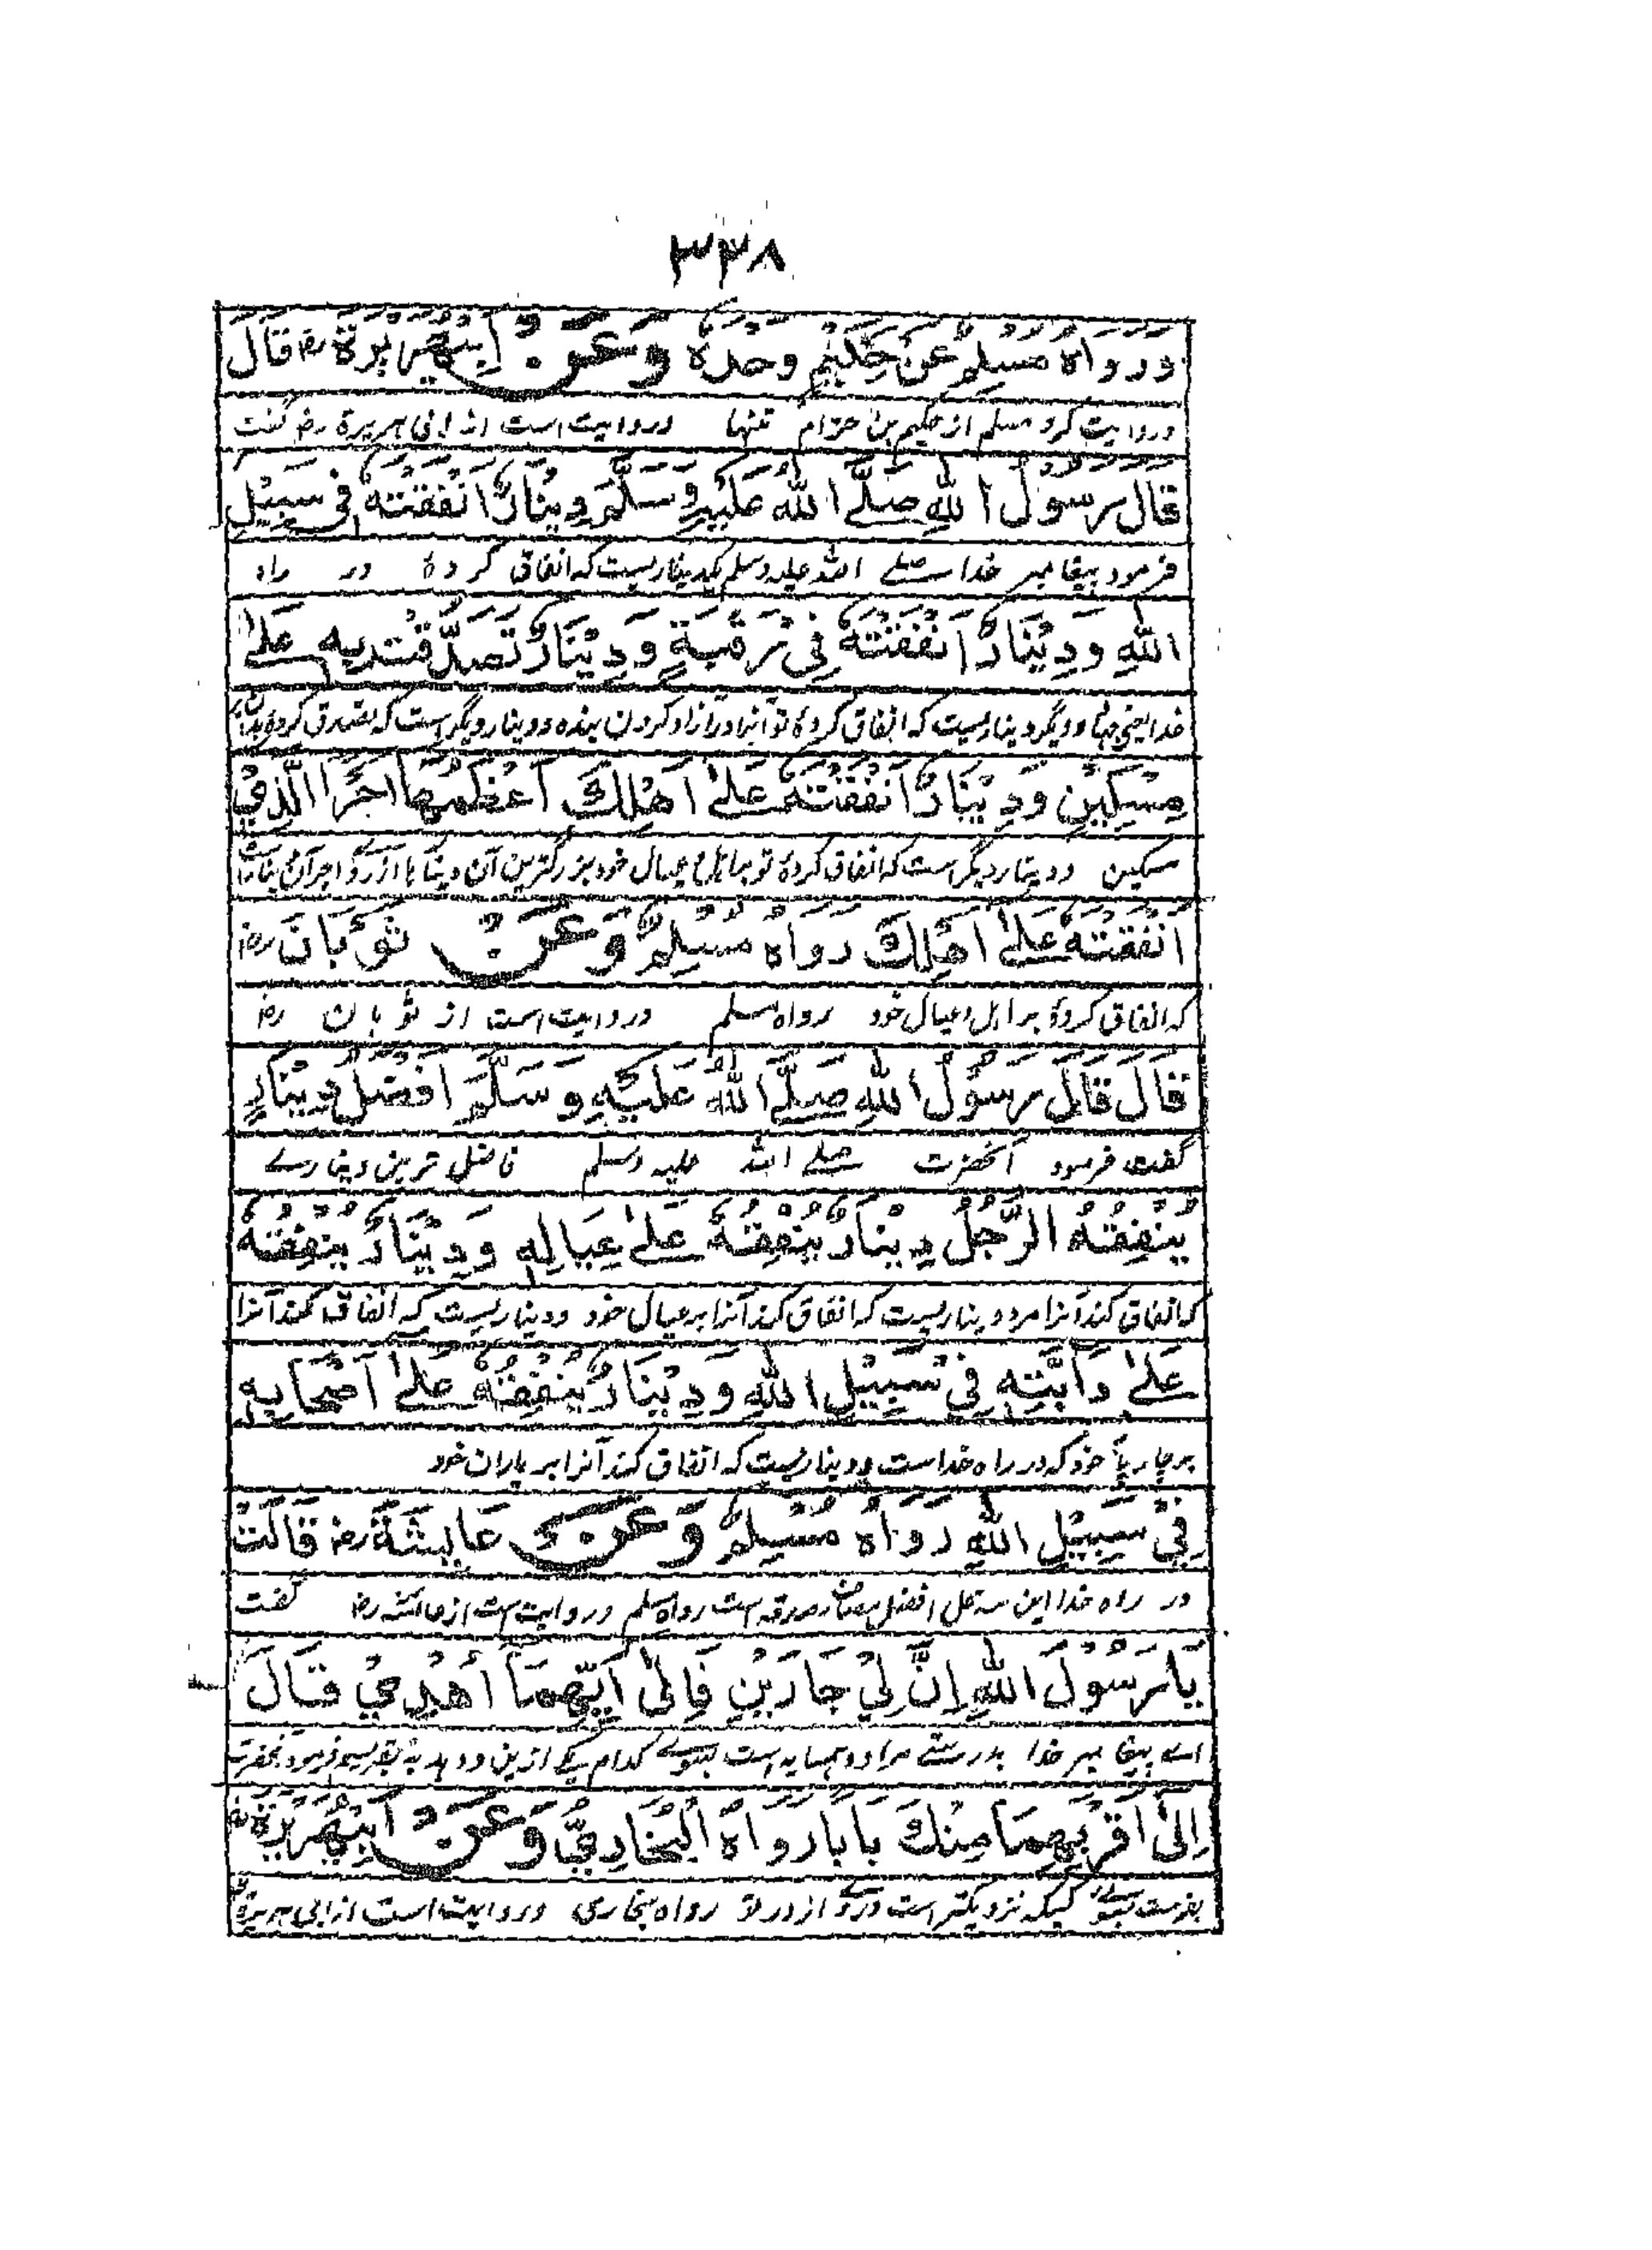 ۳۳۸
ورواه مُسلِم عَن حَكِيم وحده وَعَنْ اَبِي هُرَيْرَةَ رض قَالَ
وروایت کرد مسلم از حکیم بن حزام تنها وروایت است از ابی هریرة رض گفت
قال رسول اللهِ صَلَّے اللهُ عَلَيْهِ وَسَلَّمَ دِيْنَارٌ اَنْفَقْتَهٗ فِي سَبِيْلِ
فرمود پیغامبر خدا صلے الله علیه وسلم یکدیناریست که انفاق کردۀ در راه
اللهِ وَدِيْنَارٌ اَنْفَقْتَهٗ فِيْ رَقَبَةٍ وَدِيْنَارٌ تَصَدَّقْتَ بِهٖ عَلٰے
خدا یعنی جهاد ودیگر دیناریست که انفاق کردۀ تو آنرا در آزاد کردن بنده ودینار دیگر است که تصدق کردۀ بدان بر
مِسْكِيْنٍ وَدِيْنَارٌ اَنْفَقْتَهٗ عَلٰے اَهْلِكَ اَعْظَمُهَا اَجْرًا الَّذِيْ
مسکین ودینار دیگر است که انفاق کردۀ تو بر اهل وعیال خود بزرگترین آن دینارها از روے اجر آن دیناریست
اَنْفَقْتَهٗ عَلٰے اَهْلِكَ رواه مُسْلِمٌ وَعَنْ ثَوْبَانَ رض
که انفاق کردۀ بر اهل وعیال خود رواه مسلم وروایت است از ثوبان رض
قَالَ قَالَ رَسُوْلُ اللهِ صَلَّے اللهُ عَلَيْهِ وَسَلَّمَ اَفْضَلُ دِيْنَارٍ
گفت فرمود آنحضرت صلے الله علیه وسلم فاضل ترین دینارے
يُنْفِقُهُ الرَّجُلُ دِيْنَارٌ يُنْفِقُهٗ عَلٰے عِيَالِهٖ وَدِيْنَارٌ يُنْفِقُهٗ
که انفاق کند آنرا مرد دیناریست که انفاق کند آنرا بر عیال خود ودیناریست که انفاق کند آنرا
عَلٰے دَابَّتِهٖ فِيْ سَبِيْلِ اللهِ وَدِيْنَارٌ يُنْفِقُهٗ عَلٰے اَصْحَابِهٖ
بر چارپاے خود که در راه خداست ودیناریست که انفاق کند آنرا بر یاران خود
فِيْ سَبِيْلِ اللهِ رَوَاهُ مُسْلِمٌ وَعَنْ عَايِشَةَ رض قَالَتْ
در راه خدا این سه محل افضل مصارف صدقه است رواه مسلم وروایت است از عائشه رض گفت
يَا رَسُوْلَ اللهِ اِنَّ لِيْ جَارَيْنِ فَاِلٰى اَيِّهِمَا اُهْدِيْ قَالَ
اے پیغامبر خدا بدرستے مرا دو همسایه است بسوے کدام یکے ازین دو هدیه بفرستم فرمود آنحضرت
اِلٰى اَقْرَبِهِمَا مِنْكَ بَابًا رَوَاهُ الْبُخَارِيُّ وَعَنْ اَبِيْ هُرَيْرَةَ رض
بفرست بسوے کسیکه نزدیکتر است در وے از در تو رواه بخاری وروایت است از ابی هریرة